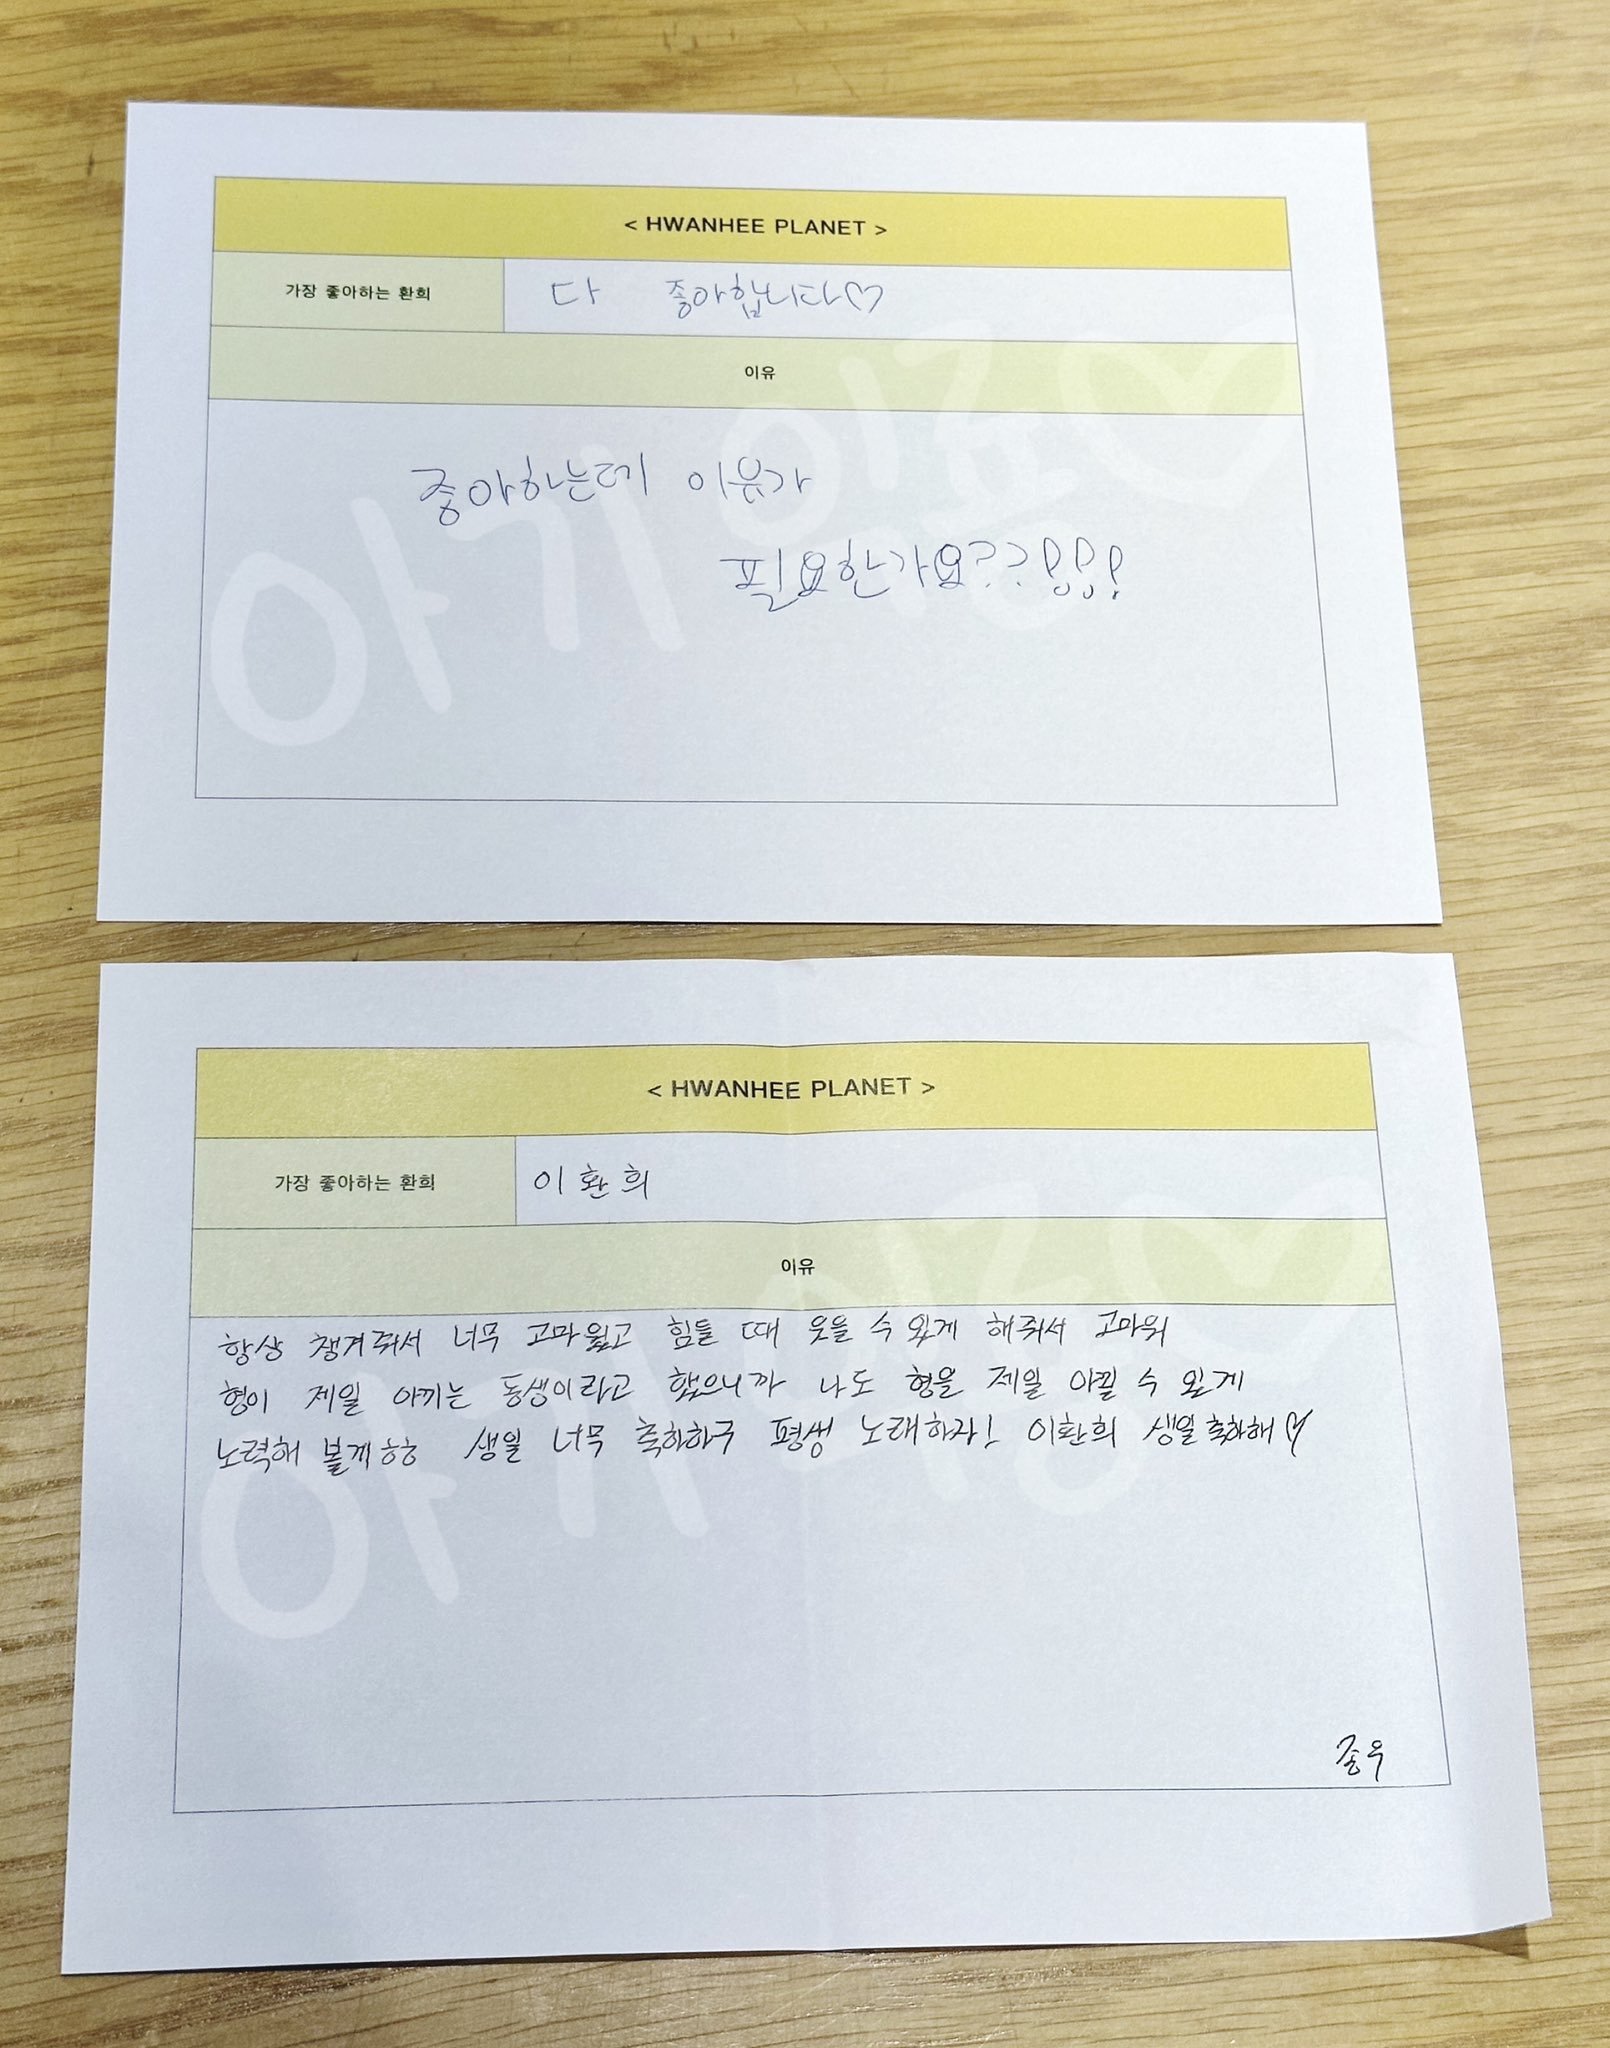 < HWANHEE PLANET >
가장 좋아하는 환희
다 좋아합니다♡
이유
좋아하는데 이유가
필요한가요??!!!
아기 잉룡♡
< HWANHEE PLANET >
가장 좋아하는 환희
이환희
이유
항상 챙겨줘서 너무 고마웠고 힘들 때 웃을 수 있게 해줘서 고마워
형이 제일 아끼는 동생이라고 했으니까 나도 형을 제일 아낄 수 있게
노력해 볼게 ㅎㅎ 생일 너무 축하하구 평생 노래하자! 이환희 생일축하해♡
아기
종우